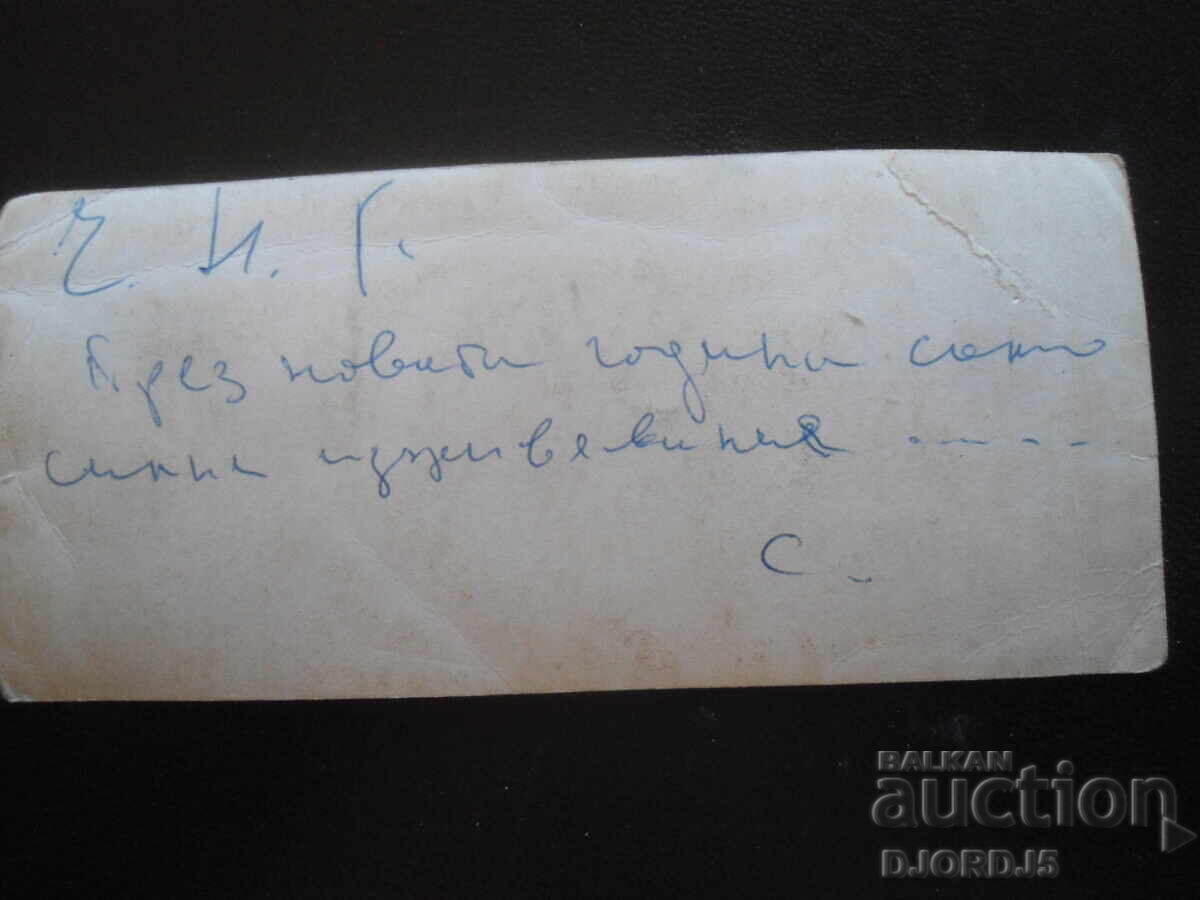 Ч. Н. Г.
През новата година само
силни изживявания .-.-.-.
С.
BALKAN
auction
DJORDJ5